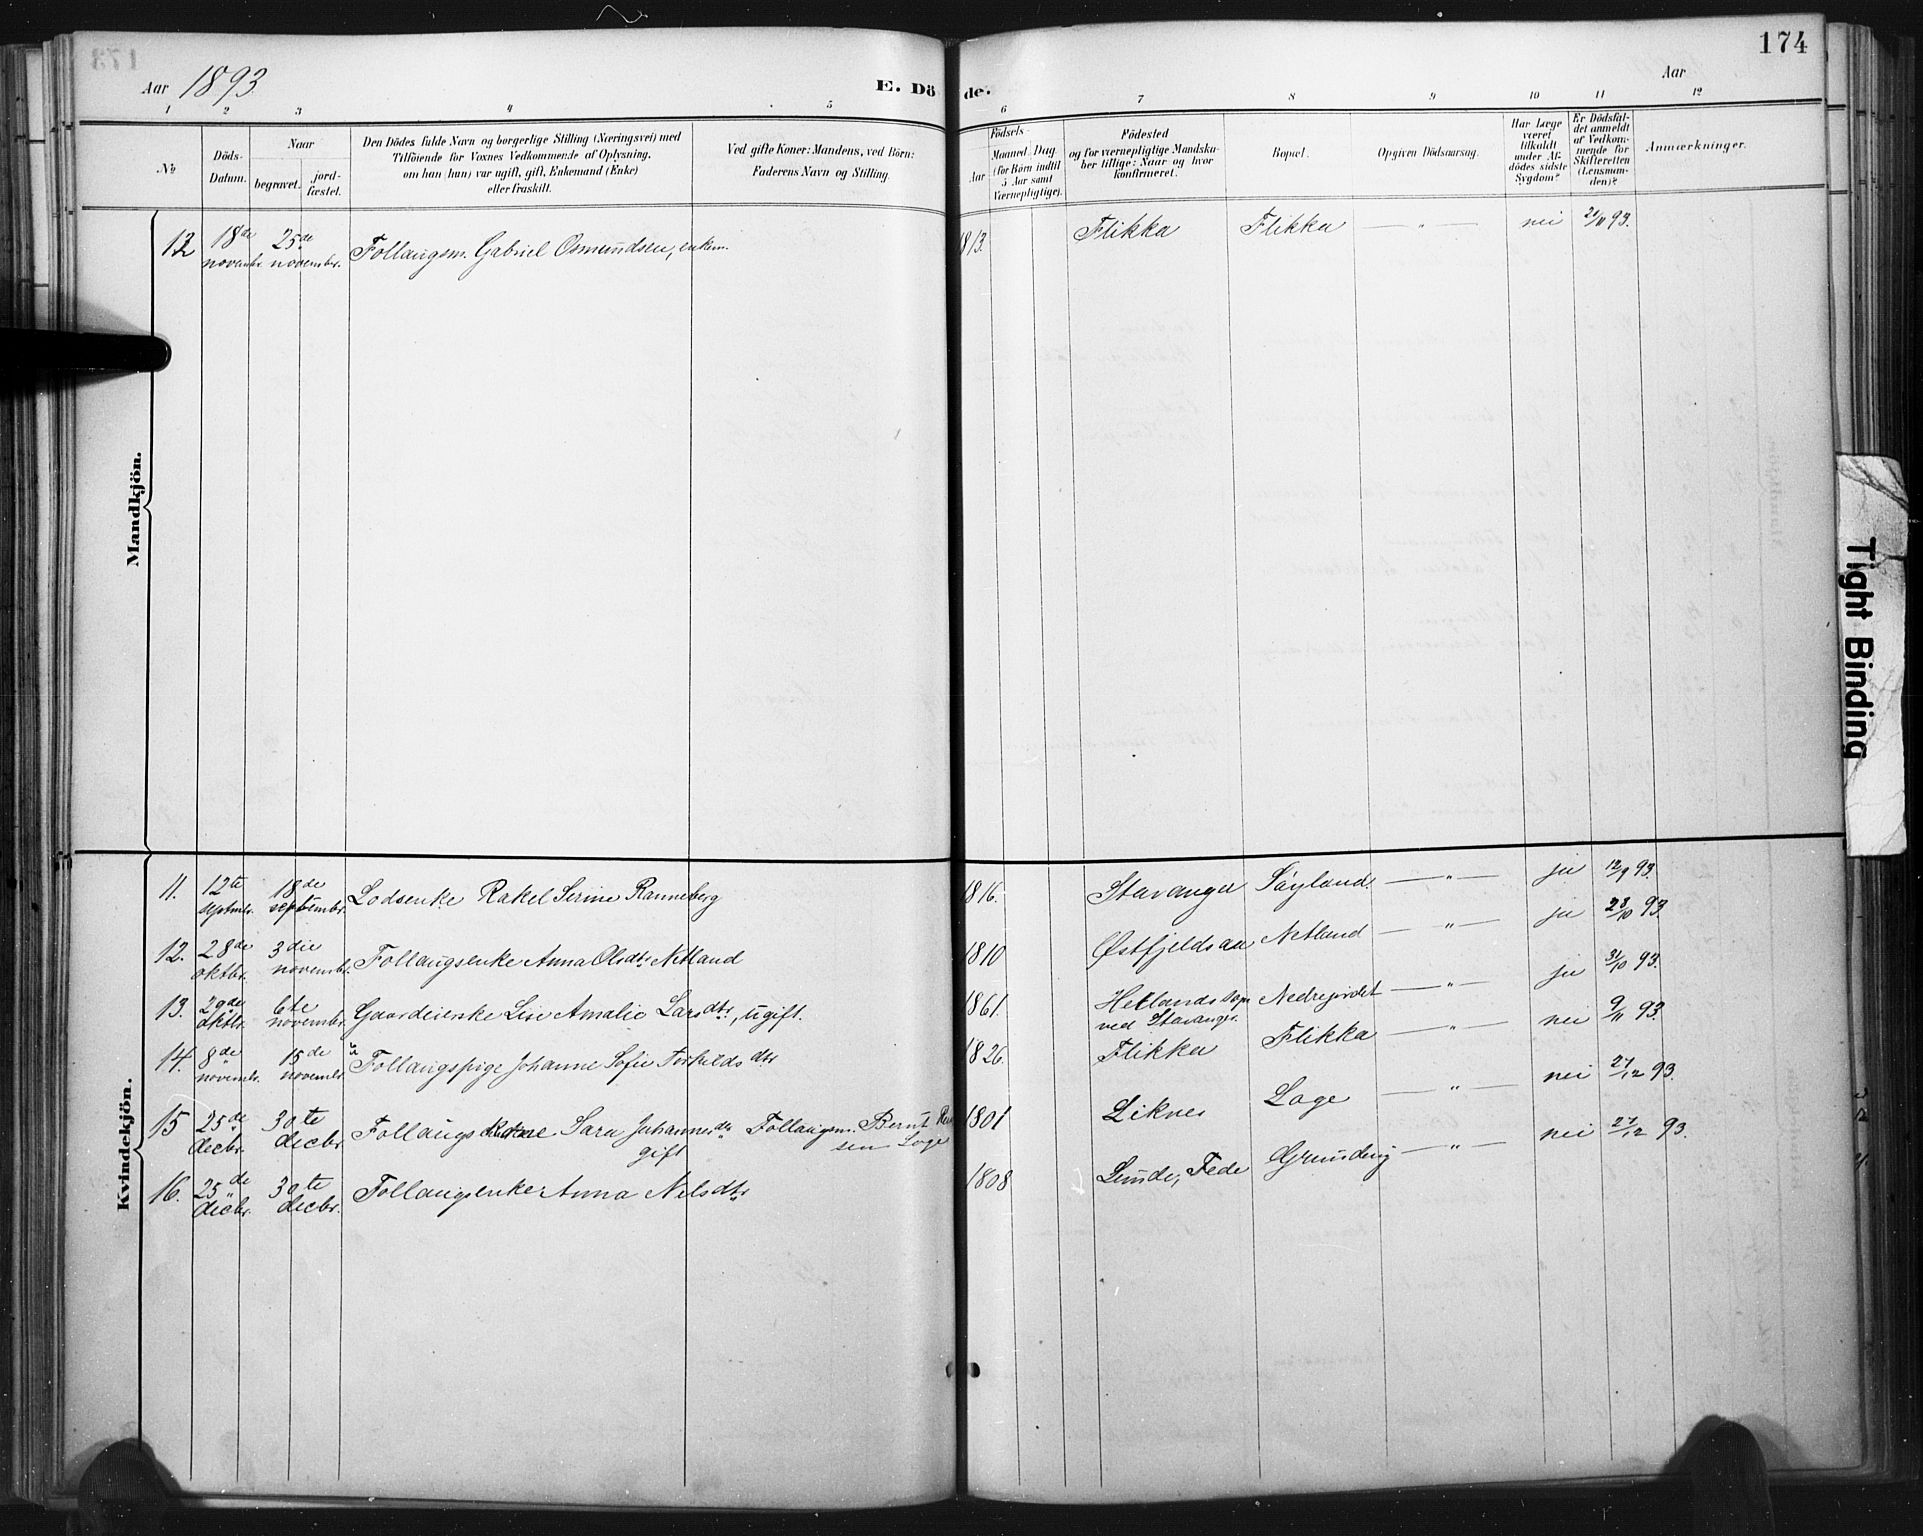 174
Aar 1893.
E. Döde.
Aar
1 2 3 4 5 6 7 8 9 10 11 12
No
Döds-
Datum.
Naar
begravet.
jord-
fæstet.
Den Dödes fulde Navn og borgerlige Stilling (Næringsvei) med
Tilföiende for Voxnes Vedkommende af Oplysning,
om han (hun) var ugift, gift, Enkemand (Enke)
eller fraskilt.
Ved gifte Koner: Mandens, ved Börn:
Faderens Navn og Stilling.
Födsels-
Aar
Maaned. Dag.
(for Börn indtil
5 Aar samt
Værnepligtige).
Födested
og for værnepligtige Mandska-
ber tillige: Naar og hvor
konfirmeret.
Bopæl.
Opgiven Dödsaarsag.
Har Læge
været
tilkaldt
under Af-
dödes sidste
Sygdom?
Er Dödsfal-
det anmeldt
af Vedkom-
mende for
Skifteretten
(Lensman-
den)?
Anmærkninger.
Mandkjön.
12 18de novembr. 25de novembr. Follaugsm. Gabriel Osmundsen, enkem. 1813. Flikka Flikka — " — nei 21/11 93.
Kvindekjön.
11. 12te septmbr. 18de septembr. Lodsenke Rakel Serine Ranneberg 1816. Stavanger Søyland. — " — ja 12/9 93.
12. 28de oktbr. 3die novembr. Follaugsenke Anna Olsdtr. Netland 1810 Østfjeldsaa Netland — " — ja 28/10 93.
13. 29de oktbr. 6te novembr. Gaardeierske Lise Amalie Larsdtr., ugift. 1861. Hetlands sogn ved Stavanger. — " — ja 31/10 93.
14. 8de novembr. 15de novembr. Follaugspige Johanne Sofie Torkildsdtr 1826. Flikka Flikka — " — nei 9/11 93.
15 25de decbr. 30te decbr. Follaugs kone Sara Johannesdtr gift Follaugsm. Bernt sen Loge 1801 Liknes Loge — " — nei 27/12 93.
16. 25de decbr. 30te decbr. Follaugsenke Anna Nilsdtr 1808 Lunde, Fede — " — nei 27/12 93.
Tight Binding